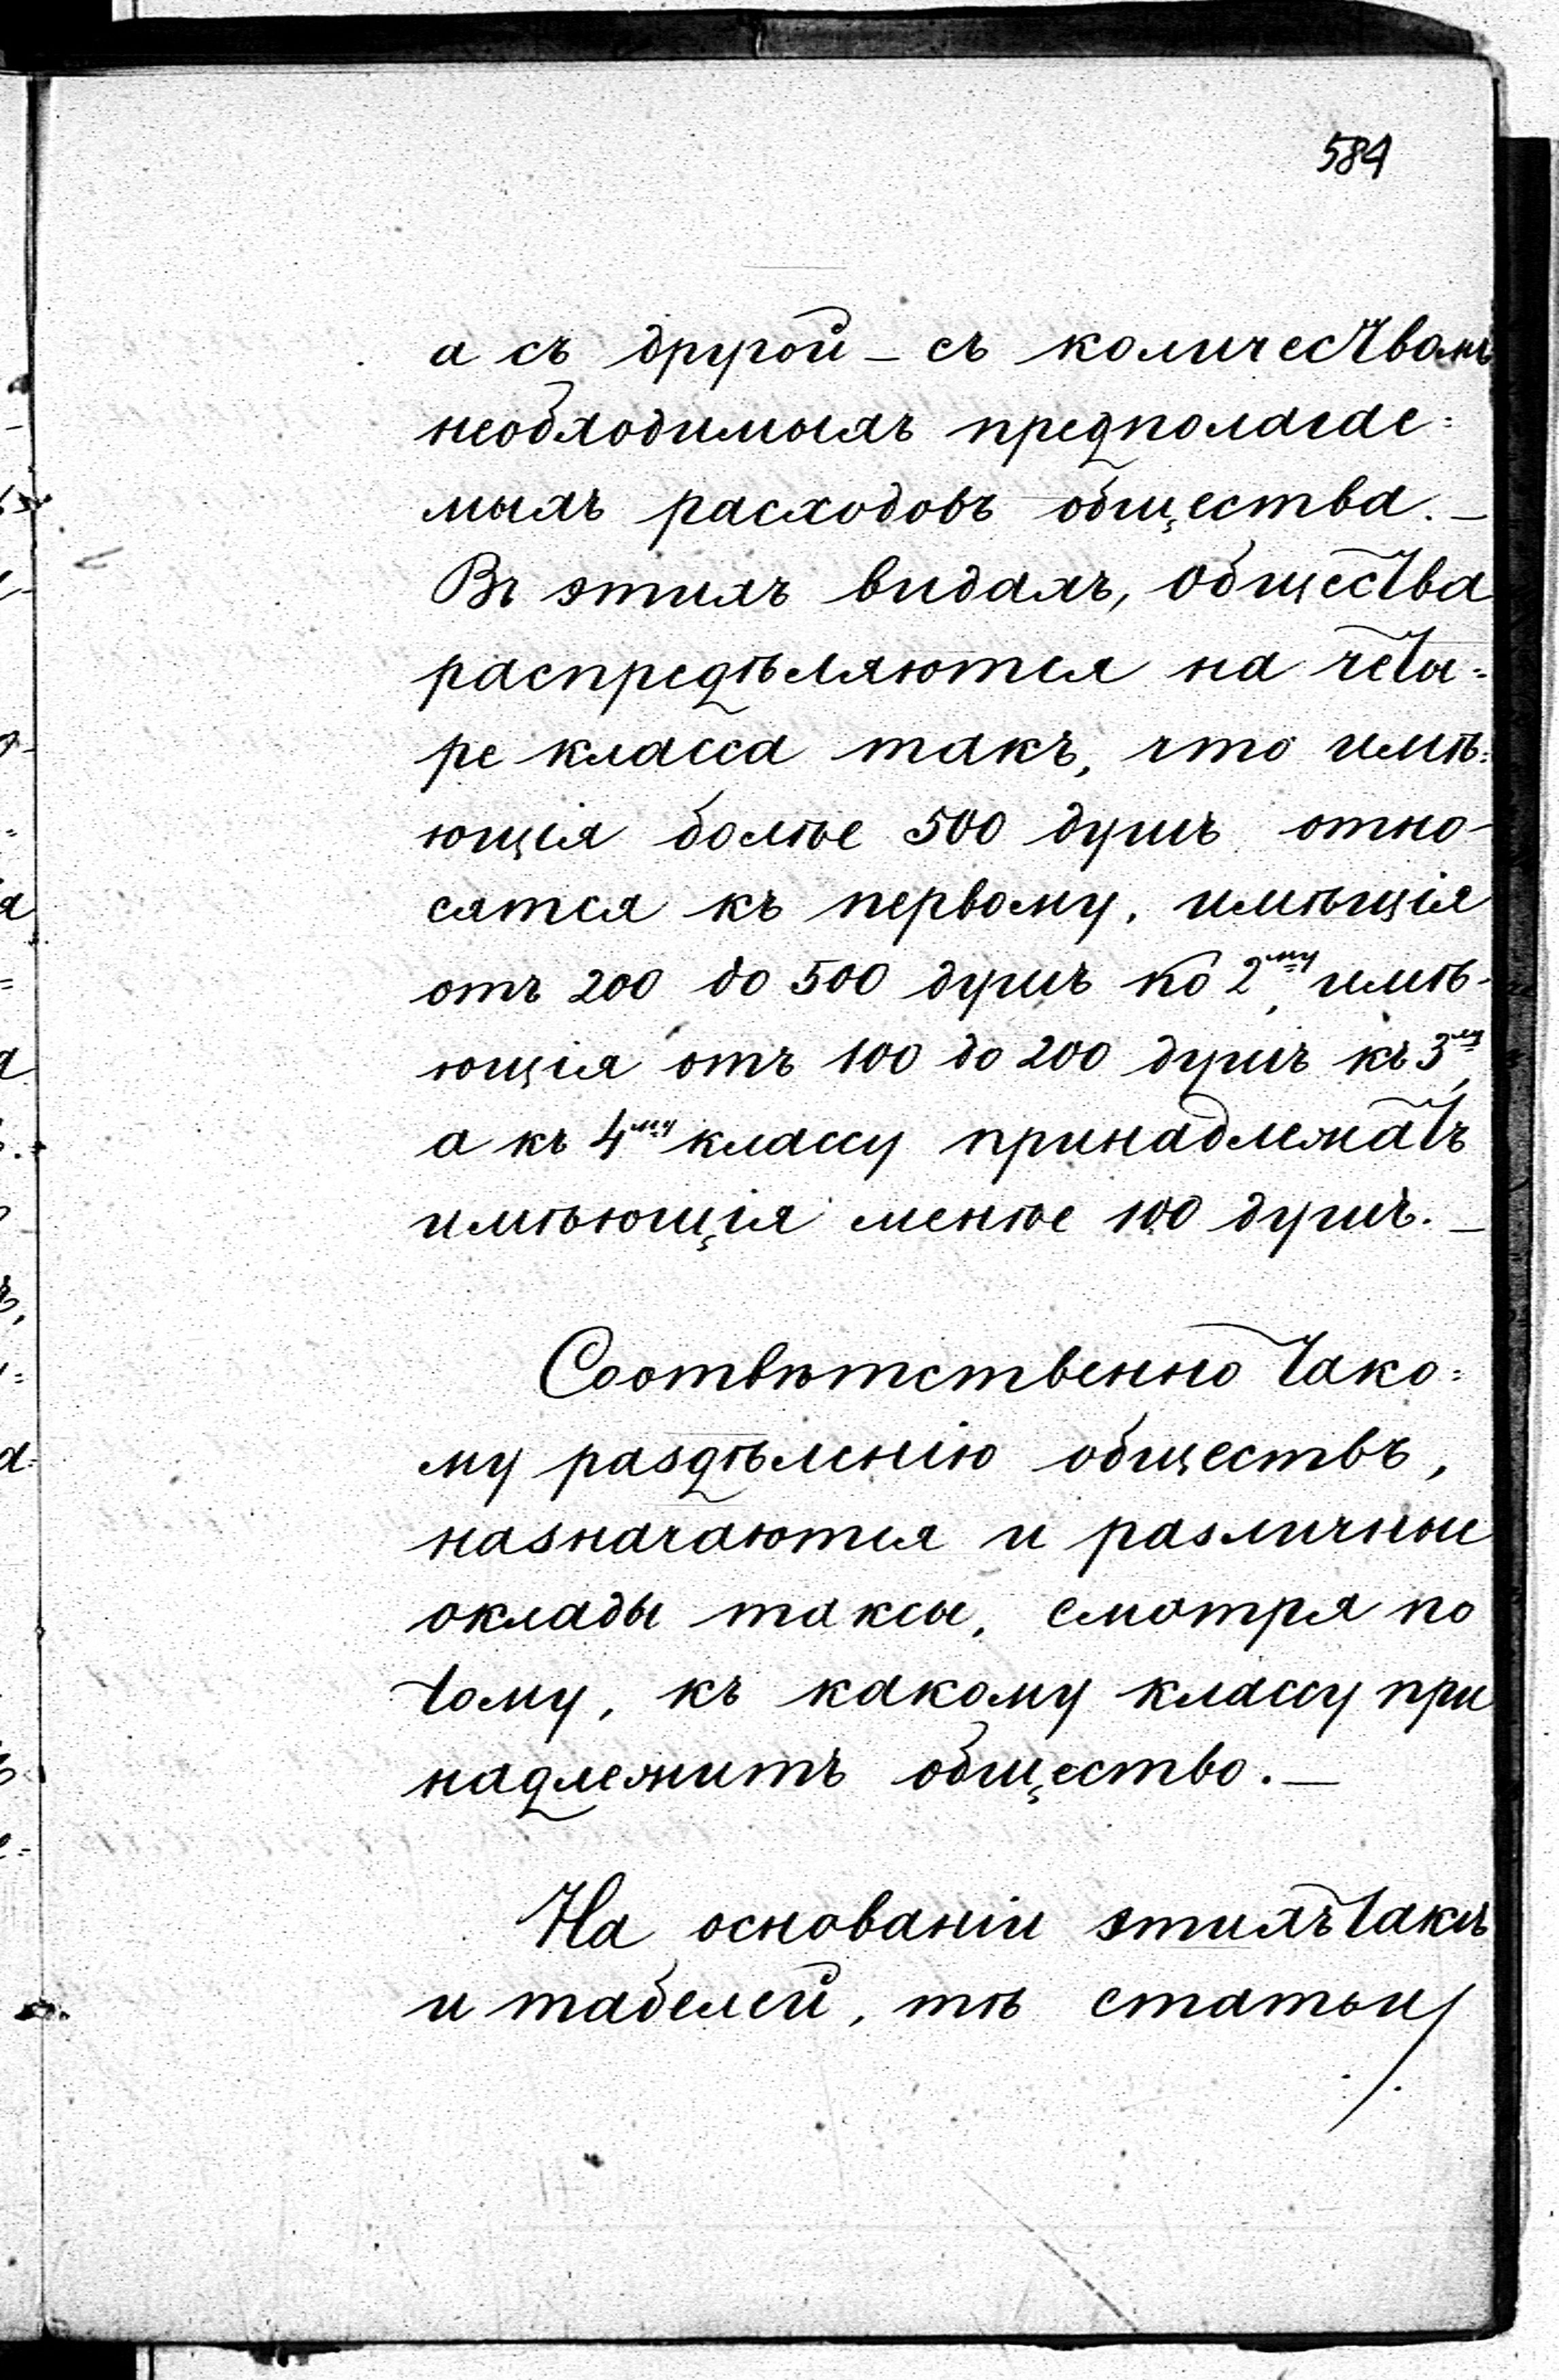 584
а съ другой – съ количествомъ
необходимыхъ предполагае=
мыхъ расходовъ общества. –
Въ этихъ видахъ, общества
распредѣляются на четы=
ре класса такъ, что имѣ=
ющія болѣе 500 душъ отно-
сятся къ первому, имѣщія
отъ 200 до 500 душъ ко 2му, имѣ-
ющія отъ 100 до 200 душъ къ 3му,
а къ 4му классу принадлежатъ
имѣющія менѣе 100 душъ. –
Соотвѣтственно тако=
му раздѣленію обществъ,
назначаются и различные
оклады таксы, смотря по
тому, къ какому классу при
надлежитъ общество. –
На основаніи этихъ таксъ
и табелей, тѣ статьи
./.